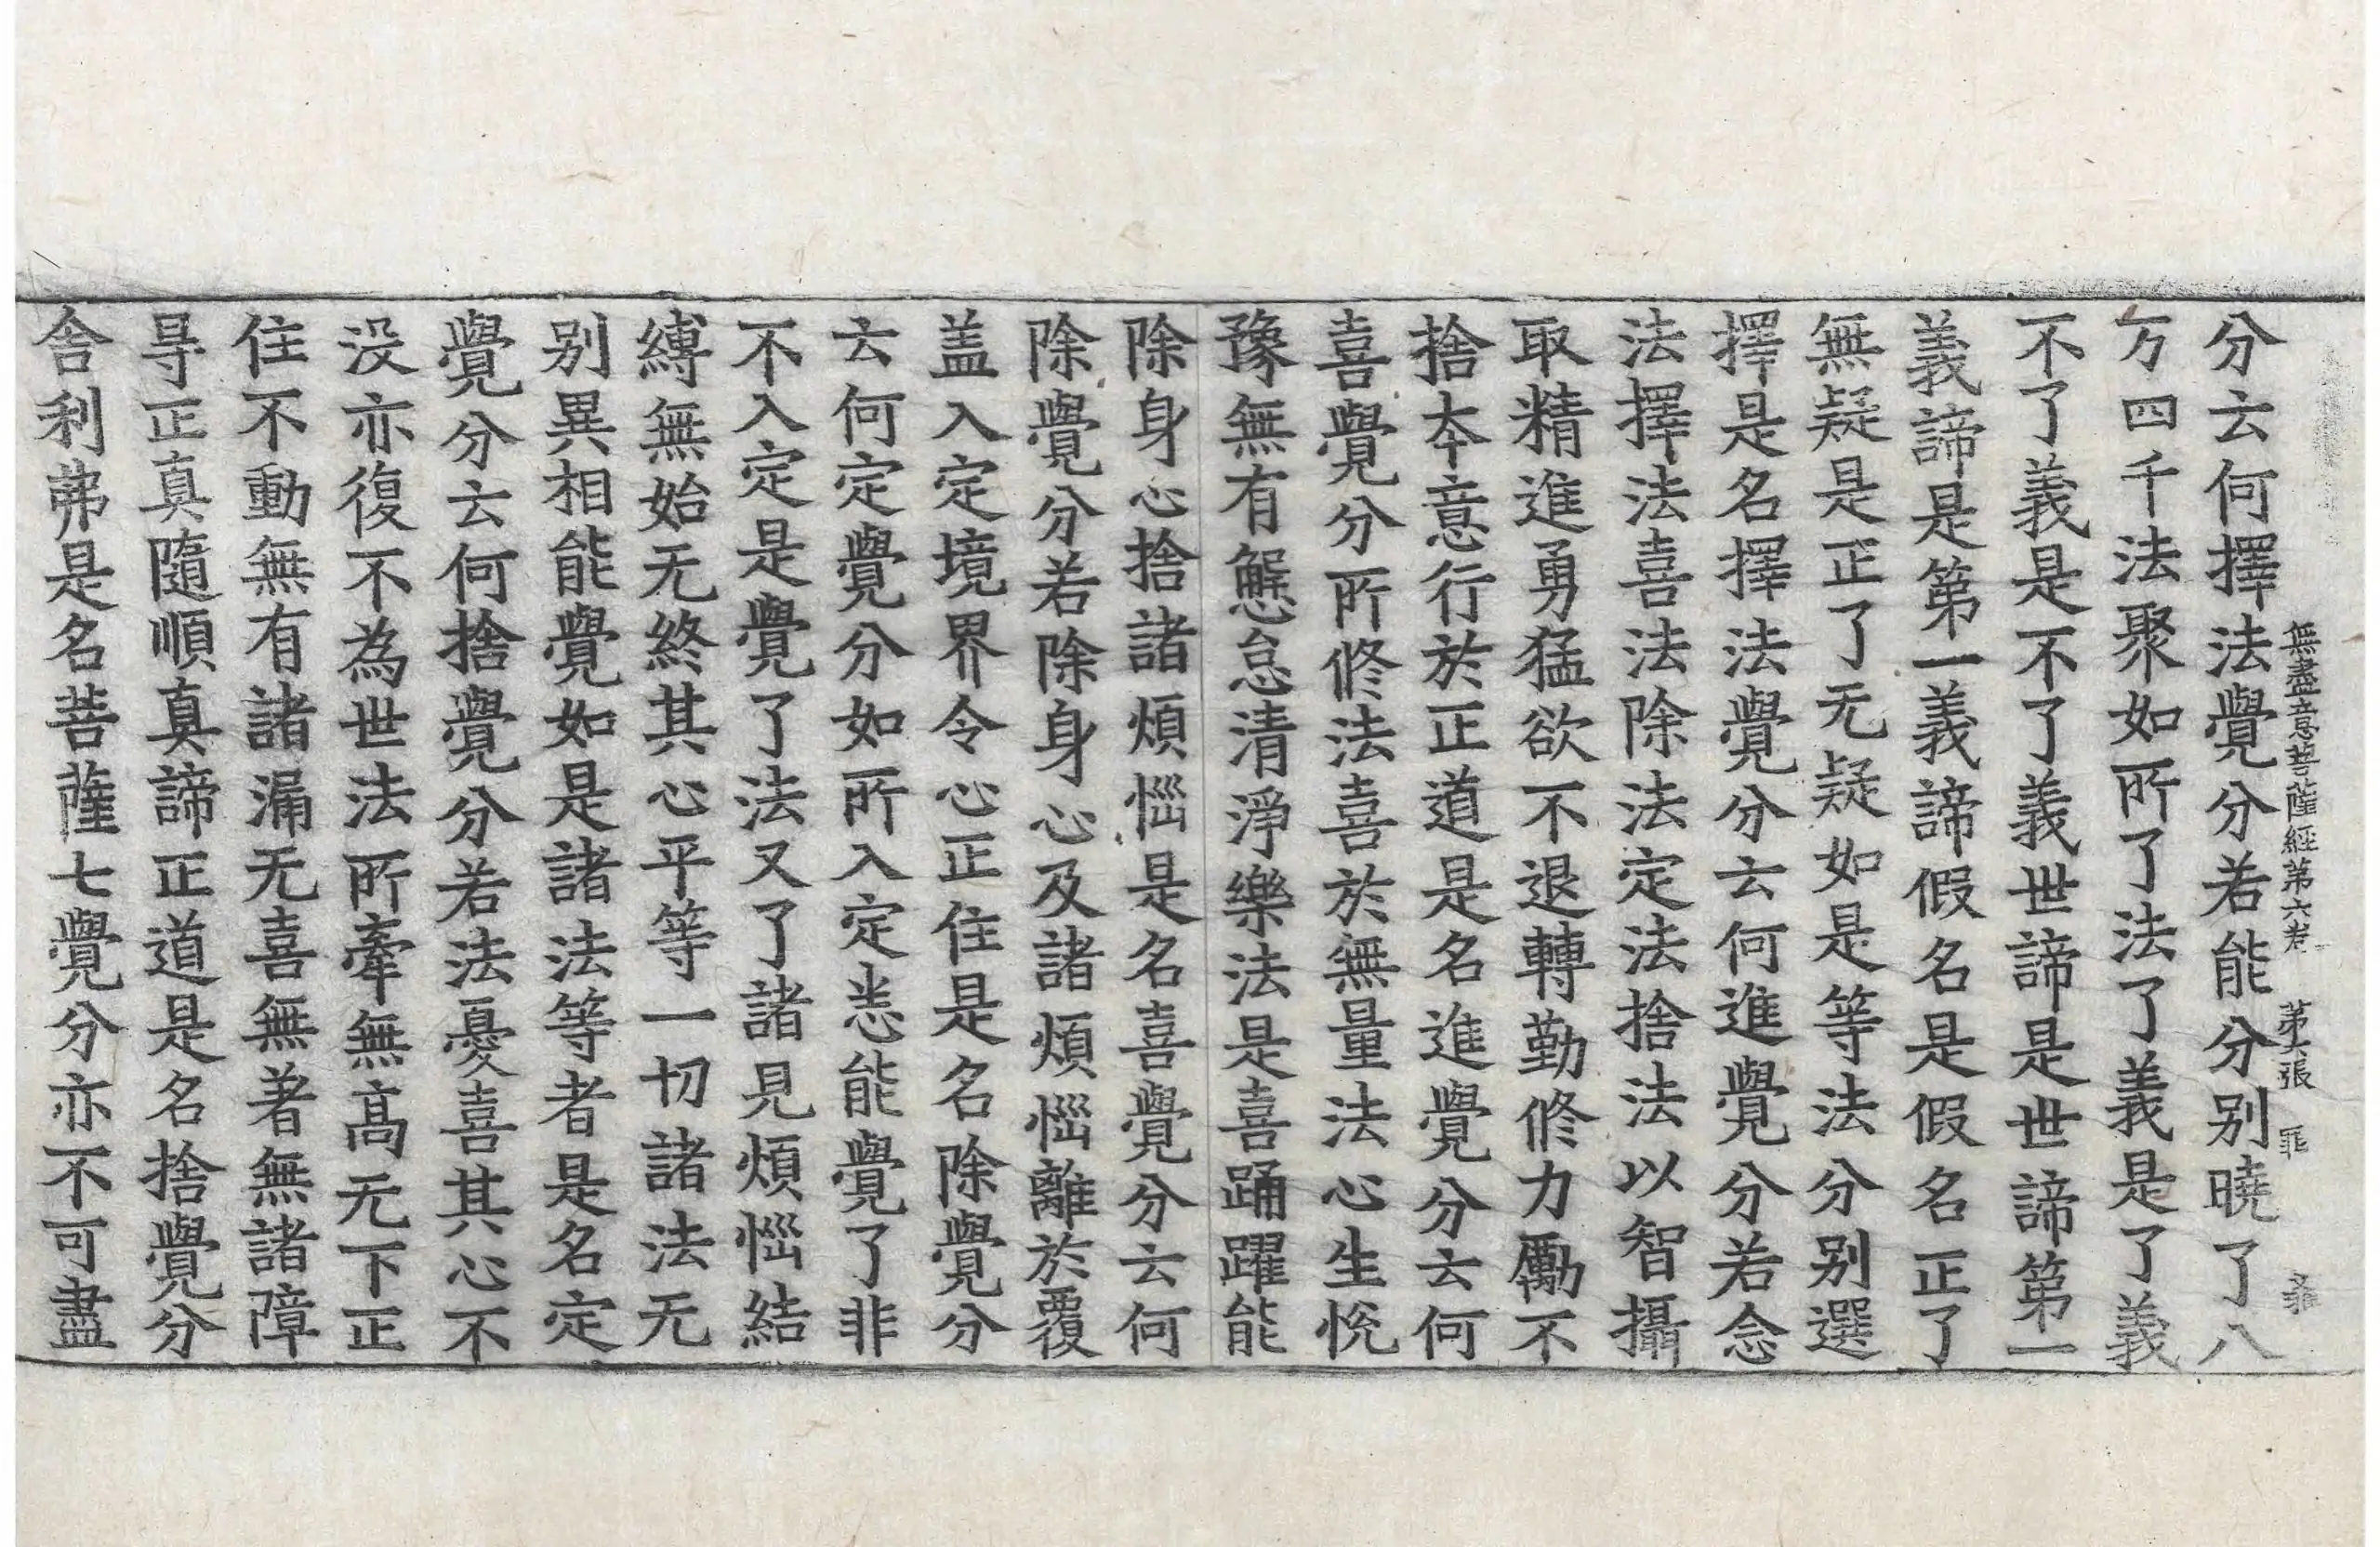 無盡意菩薩經第六卷 第六張 罪
分云何擇法覺分若能分别曉了八
万四千法聚如所了法了義是了義
不了義是不了義世諦是世諦第一
義諦是第一義諦假名是假名正了
無疑是正了无疑如是等法分别選
擇是名擇法覺分云何進覺分若念
法擇法喜法除法定法捨法以智攝
取精進勇猛欲不退轉勤修力勵不
捨本意行於正道是名進覺分云何
喜覺分所修法喜於無量法心生悅
豫無有懈怠清淨樂法是喜踊躍能
除身心捨諸煩惱是名喜覺分云何
除覺分若除身心及諸煩惱離於覆
盖入定境界令心正住是名除覺分
云何定覺分如所入定悉能覺了非
不入定是覺了法又了諸見煩惱結
縛無始无終其心平等一切諸法无
别異相能覺如是諸法等者是名定
覺分云何捨覺分若法憂喜其心不
没亦復不為世法所牽無髙无下正
住不動無有諸漏无喜無著無諸障
㝵正真隨順真諦正道是名捨覺分
舍利弗是名菩薩七覺分亦不可盡